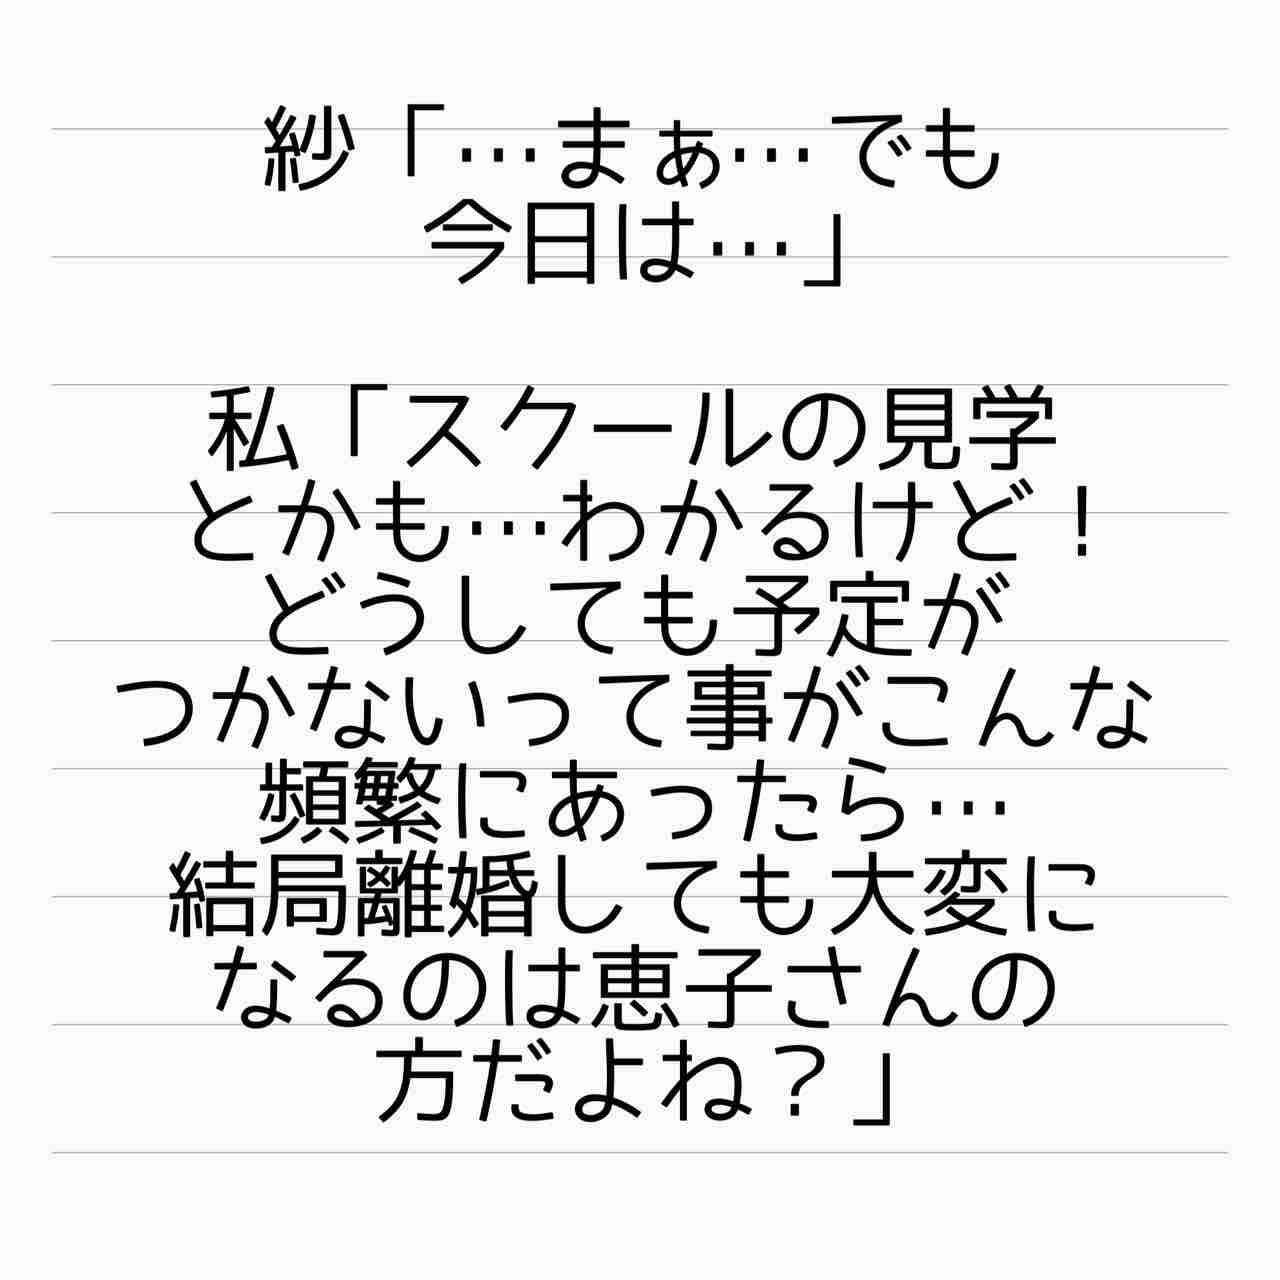 紗「…まぁ…でも
今日は…」
私「スクールの見学
とかも…わかるけど！
どうしても予定が
つかないって事がこんな
頻繁にあったら…
結局離婚しても大変に
なるのは恵子さんの
方だよね？」